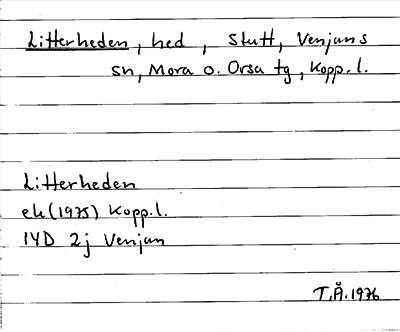 Litterheden, hed, Stutt, Venjans
sn, Mora o. Orsa tg, Kopp.l.
Litterheden
ek (1975) Kopp.l.
14D 2j Venjan
T.Å. 1976